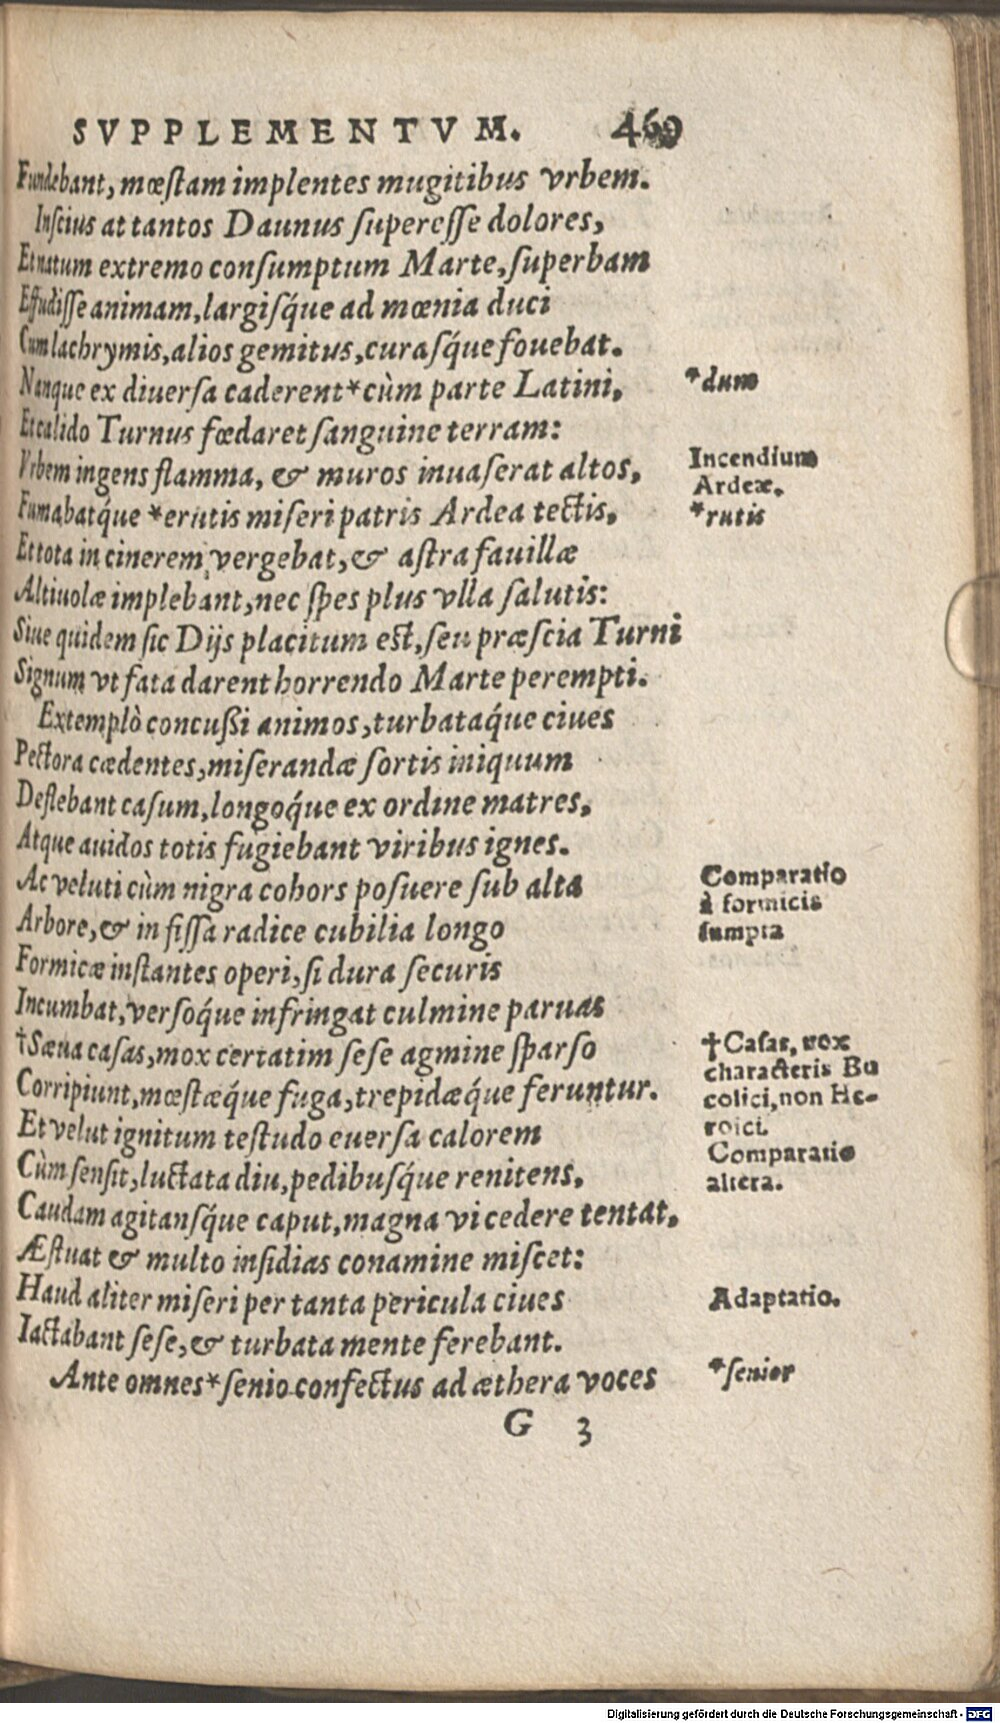 SVPPLEMENTVM. 469
Fundebant, mœſtam implentes mugitibus vrbem.
Inſcius at tantos Daunus ſupereſſe dolores,
Et natum extremo conſumptum Marte, ſuperbam
Effudiſſe animam, largiſq́ue ad mœnia duci
Cum lachrymis, alios gemitus, curaſq́ue fouebat.
Nanque ex diuerſa caderent*cùm parte Latini,
*dum
Et calido Turnus fœdaret ſanguine terram:
Vrbem ingens flamma, & muros inuaſerat altos,
Incendium
Ardeæ.
Fumabatq́ue *erutis miſeri patris Ardea tectis,
*rutis
Et tota in cinerem vergebat, & aſtra fauillæ
Altiuolæ implebant, nec ſpes plus vlla ſalutis:
Siue quidem ſic Dijs placitum eſt, ſeu præſcia Turni
Signum vt fata darent horrendo Marte perempti.
Extemplò concußi animos, turbataq́ue ciues
Pectora cædentes, miſerandæ ſortis iniquum
Deflebant caſum, longoq́ue ex ordine matres,
Atque auidos totis fugiebant viribus ignes.
Ac veluti cùm nigra cohors poſuere ſub alta
Comparatio
à formicis
ſumpta
Arbore, & in fiſſa radice cubilia longo
Formicæ inſtantes operi, ſi dura ſecuris
Incumbat, verſoq́ue infringat culmine paruas
†Sæua caſas, mox certatim ſeſe agmine ſparſo
†Caſas, vox
characteris Bu
colici, non He-
roici.
Corripiunt, mœſtæq́ue fuga, trepidæq́ue feruntur.
Et velut ignitum teſtudo euerſa calorem
Comparatio
altera.
Cùm ſenſit, luctata diu, pedibuſq́ue renitens,
Caudam agitanſq́ue caput, magna vi cedere tentat,
Æſtuat & multo inſidias conamine miſcet:
Haud aliter miſeri per tanta pericula ciues
Adaptatio.
Iactabant ſeſe, & turbata mente ferebant.
Ante omnes*ſenio confectus ad æthera voces
*ſenior
G 3
Digitalisierung gefördert durch die Deutsche Forschungsgemeinschaft - DFG